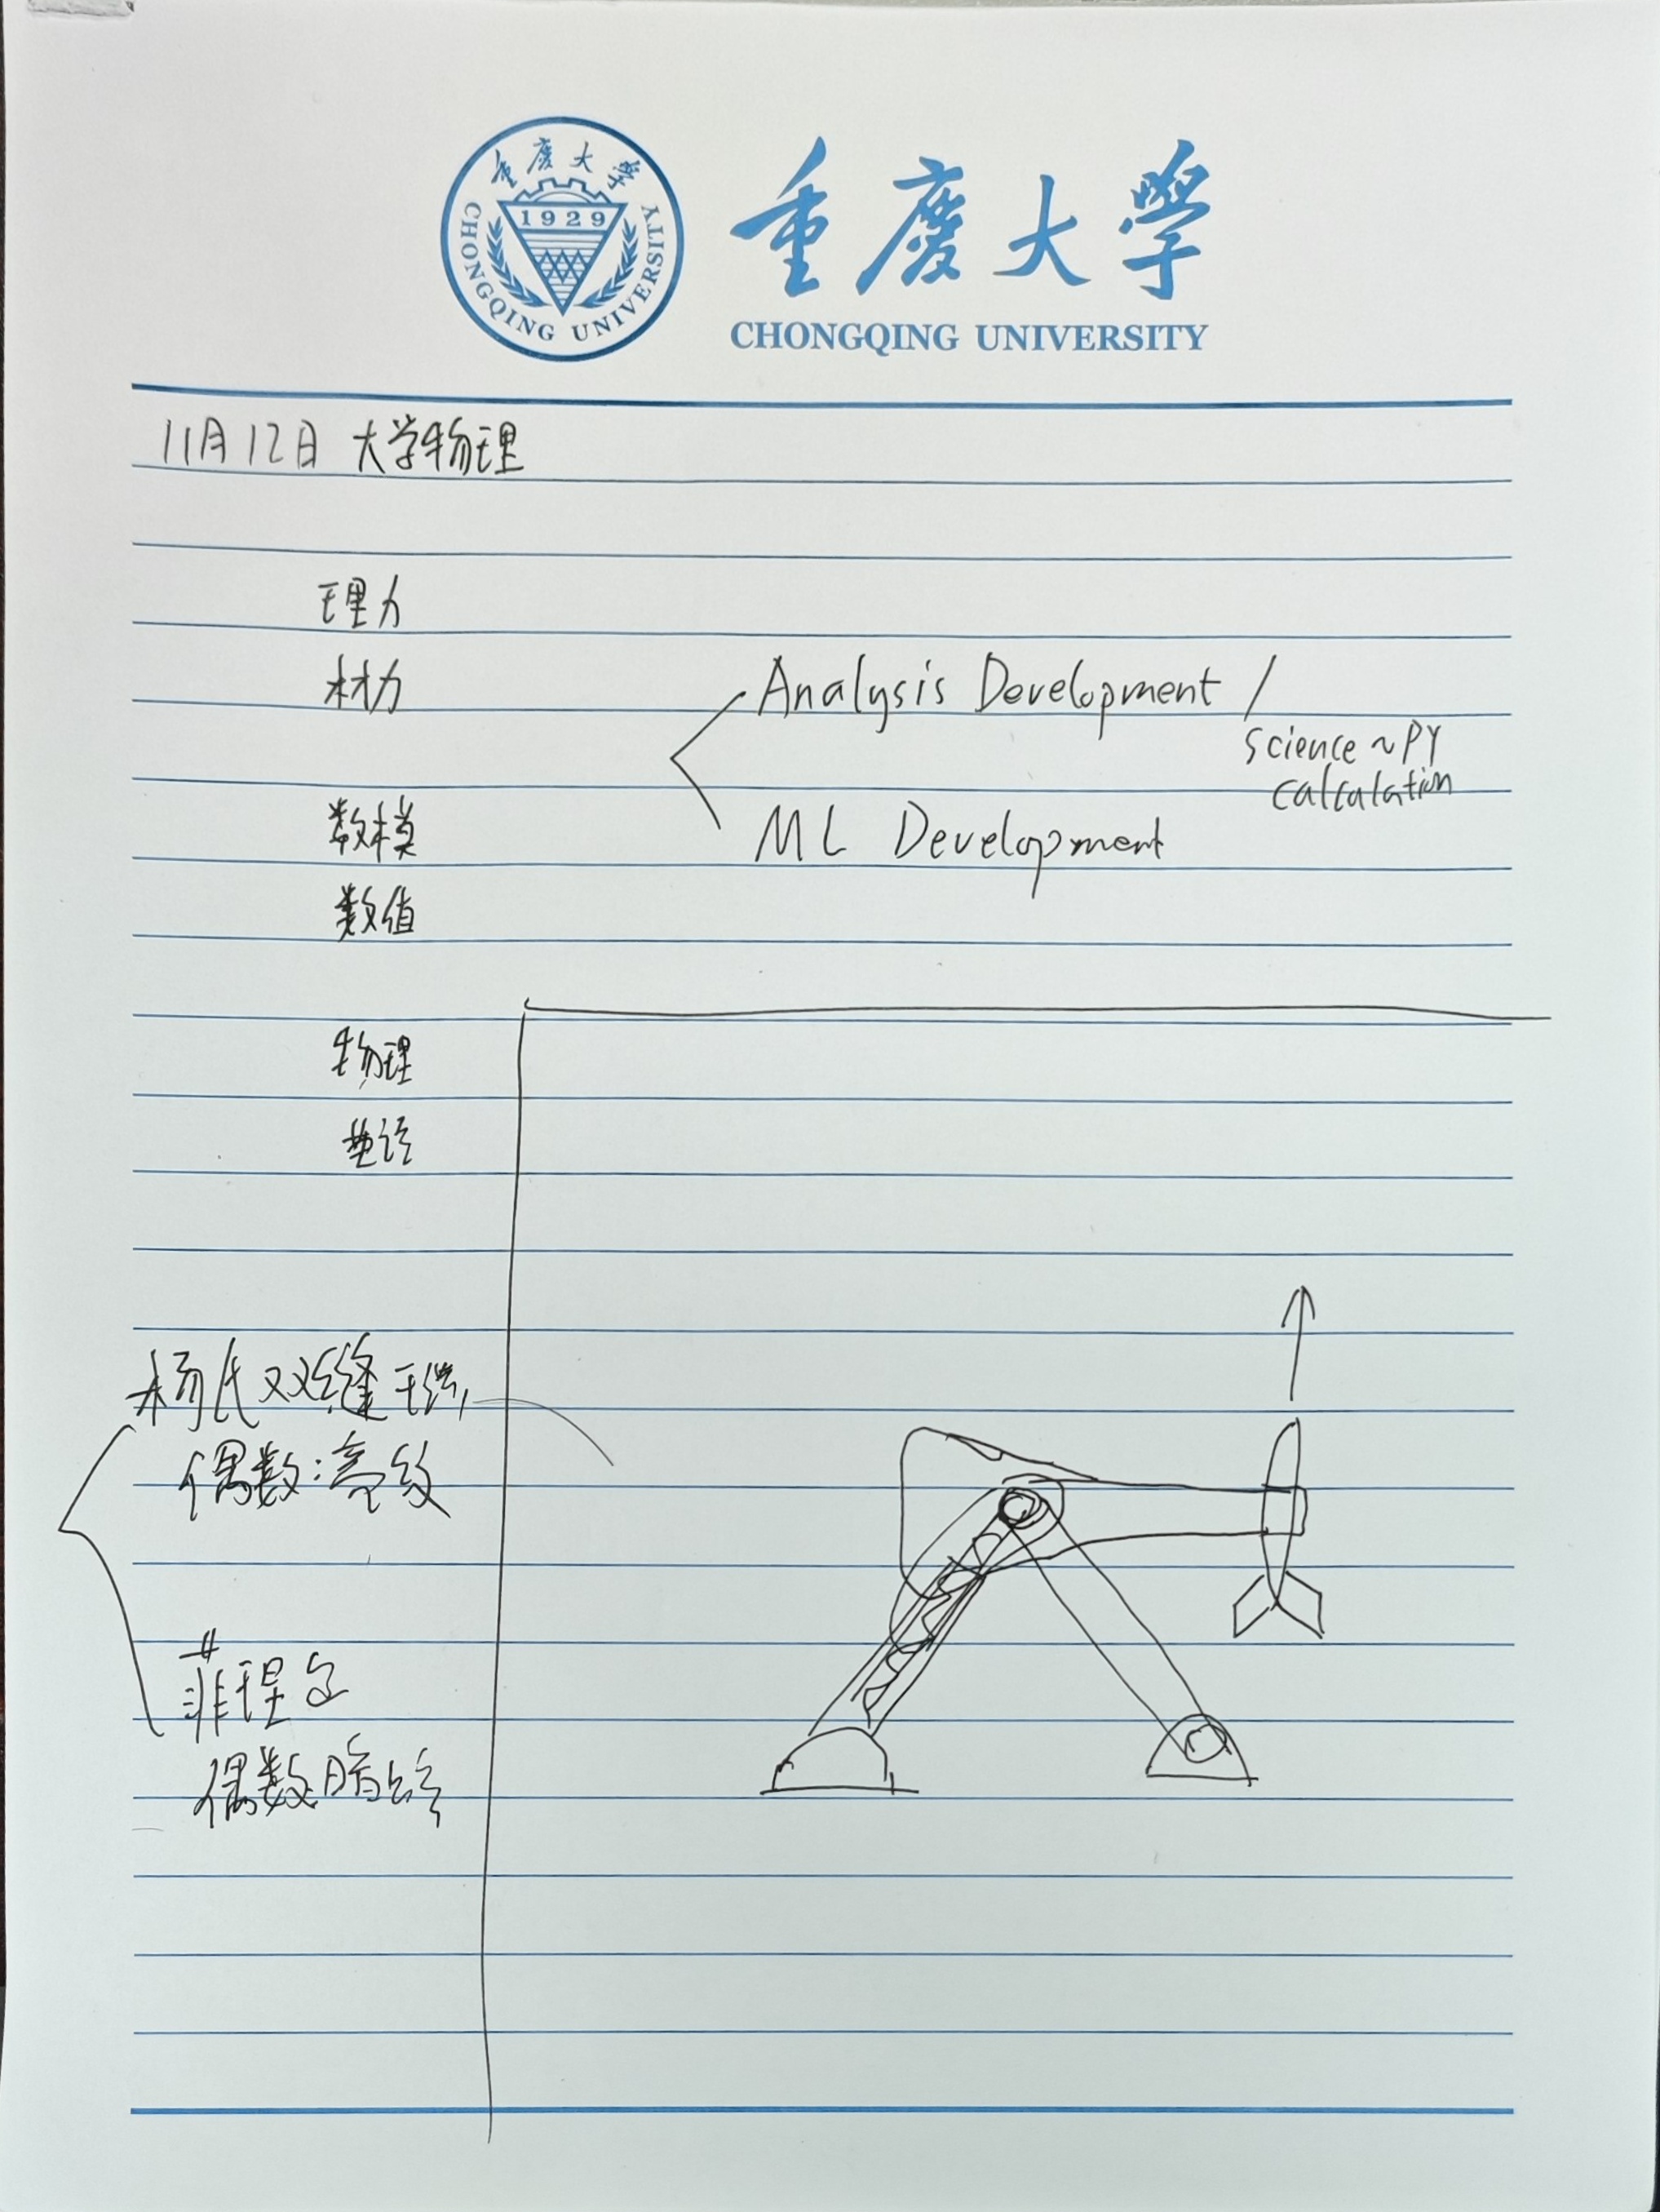 重庆大学
1929
CHONGQING UNIVERSITY
重慶大學
CHONGQING UNIVERSITY
11月12日 大学物理
理力
材力
Analysis Development /
science ~ PY
calculation
数模
ML Development
数值
物理
杨氏双缝干涉
偶数:亮纹
菲涅
偶数暗纹